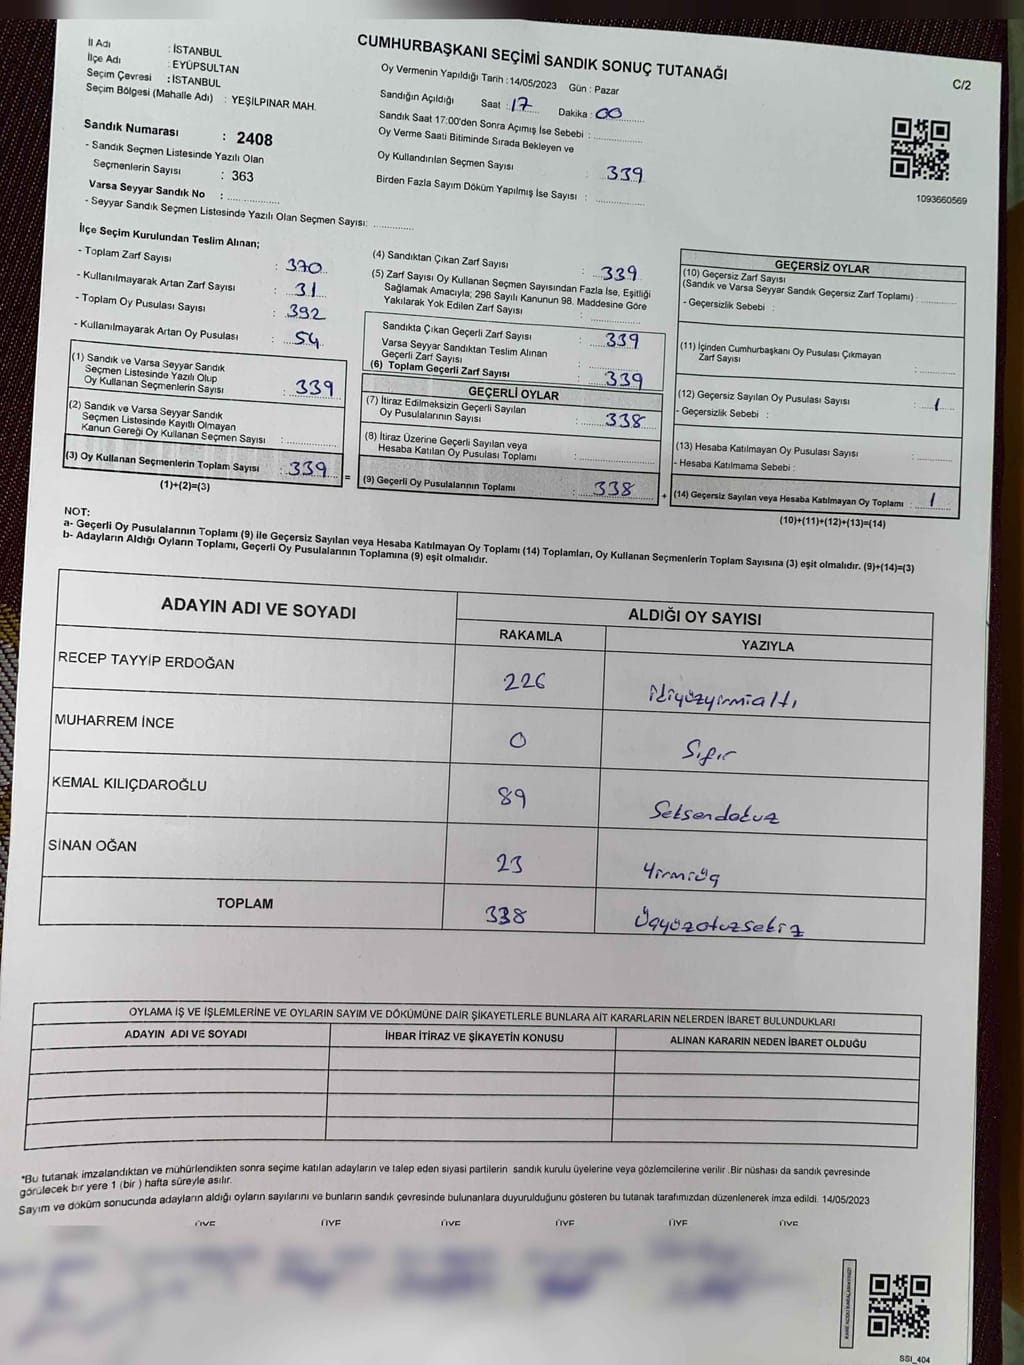 CUMHURBAŞKANI SEÇİMİ SANDIK SONUÇ TUTANAĞI
C/2
İl Adı : İSTANBUL
İlçe Adı : EYÜPSULTAN
Seçim Çevresi : İSTANBUL
Seçim Bölgesi (Mahalle Adı) : YEŞİLPINAR MAH.
Sandık Numarası : 2408
- Sandık Seçmen Listesinde Yazılı Olan
Seçmenlerin Sayısı : 363
Varsa Seyyar Sandık No :
- Seyyar Sandık Seçmen Listesinde Yazılı Olan Seçmen Sayısı:
Oy Vermenin Yapıldığı Tarih : 14/05/2023 Gün : Pazar
Sandığın Açıldığı Saat : 17 Dakika : 00
Sandık Saat 17:00'den Sonra Açımış İse Sebebi :
Oy Verme Saati Bitiminde Sırada Bekleyen ve
Oy Kullandırılan Seçmen Sayısı : 339
Birden Fazla Sayım Döküm Yapılmış İse Sayısı :
1093660569
İlçe Seçim Kurulundan Teslim Alınan;
- Toplam Zarf Sayısı : 370
- Kullanılmayarak Artan Zarf Sayısı : 31
- Toplam Oy Pusulası Sayısı : 392
- Kullanılmayarak Artan Oy Pusulası : 54
(1) Sandık ve Varsa Seyyar Sandık
Seçmen Listesinde Yazılı Olup
Oy Kullanan Seçmenlerin Sayısı : 339
(2) Sandık ve Varsa Seyyar Sandık
Seçmen Listesinde Kayıtlı Olmayan
Kanun Gereği Oy Kullanan Seçmen Sayısı :
(3) Oy Kullanan Seçmenlerin Toplam Sayısı : 339
(1)+(2)=(3)
(4) Sandıktan Çıkan Zarf Sayısı : 339
(5) Zarf Sayısı Oy Kullanan Seçmen Sayısından Fazla İse, Eşitliği
Sağlamak Amacıyla; 298 Sayılı Kanunun 98. Maddesine Göre
Yakılarak Yok Edilen Zarf Sayısı :
Sandıkta Çıkan Geçerli Zarf Sayısı : 339
Varsa Seyyar Sandıktan Teslim Alınan
Geçerli Zarf Sayısı :
(6) Toplam Geçerli Zarf Sayısı : 339
GEÇERLİ OYLAR
(7) İtiraz Edilmeksizin Geçerli Sayılan
Oy Pusulalarının Sayısı : 338
(8) İtiraz Üzerine Geçerli Sayılan veya
Hesaba Katılan Oy Pusulası Toplamı :
= (9) Geçerli Oy Pusulalarının Toplamı : 338
GEÇERSİZ OYLAR
(10) Geçersiz Zarf Sayısı
(Sandık ve Varsa Seyyar Sandık Geçersiz Zarf Toplamı) :
- Geçersizlik Sebebi :
(11) İçinden Cumhurbaşkanı Oy Pusulası Çıkmayan
Zarf Sayısı :
(12) Geçersiz Sayılan Oy Pusulası Sayısı : 1
- Geçersizlik Sebebi :
(13) Hesaba Katılmayan Oy Pusulası Sayısı :
- Hesaba Katılmama Sebebi :
+ (14) Geçersiz Sayılan veya Hesaba Katılmayan Oy Toplamı : 1
(10)+(11)+(12)+(13)=(14)
NOT:
a- Geçerli Oy Pusulalarının Toplamı (9) ile Geçersiz Sayılan veya Hesaba Katılmayan Oy Toplamı (14) Toplamları, Oy Kullanan Seçmenlerin Toplam Sayısına (3) eşit olmalıdır. (9)+(14)=(3)
b- Adayların Aldığı Oyların Toplamı, Geçerli Oy Pusulalarının Toplamına (9) eşit olmalıdır.
ADAYIN ADI VE SOYADI ALDIĞI OY SAYISI
RAKAMLA YAZIYLA
RECEP TAYYİP ERDOĞAN 226 ikiyüzyirmialtı
MUHARREM İNCE 0 Sıfır
KEMAL KILIÇDAROĞLU 89 Seksendokuz
SİNAN OĞAN 23 Yirmiüç
TOPLAM 338 Üçyüzotuzsekiz
OYLAMA İŞ VE İŞLEMLERİNE VE OYLARIN SAYIM VE DÖKÜMÜNE DAİR ŞİKAYETLERLE BUNLARA AİT KARARLARIN NELERDEN İBARET BULUNDUKLARI
ADAYIN ADI VE SOYADI İHBAR İTİRAZ VE ŞİKAYETİN KONUSU ALINAN KARARIN NEDEN İBARET OLDUĞU
*Bu tutanak imzalandıktan ve mühürlendikten sonra seçime katılan adayların ve talep eden siyasi partilerin sandık kurulu üyelerine veya gözlemcilerine verilir .Bir nüshası da sandık çevresinde
görülecek bir yere 1 (bir ) hafta süreyle asılır.
Sayım ve döküm sonucunda adayların aldığı oyların sayılarını ve bunların sandık çevresinde bulunanlara duyurulduğunu gösteren bu tutanak tarafımızdan düzenlenerek imza edildi. 14/05/2023
ÜYE ÜYE ÜYE ÜYE ÜYE ÜYE
SSI_404